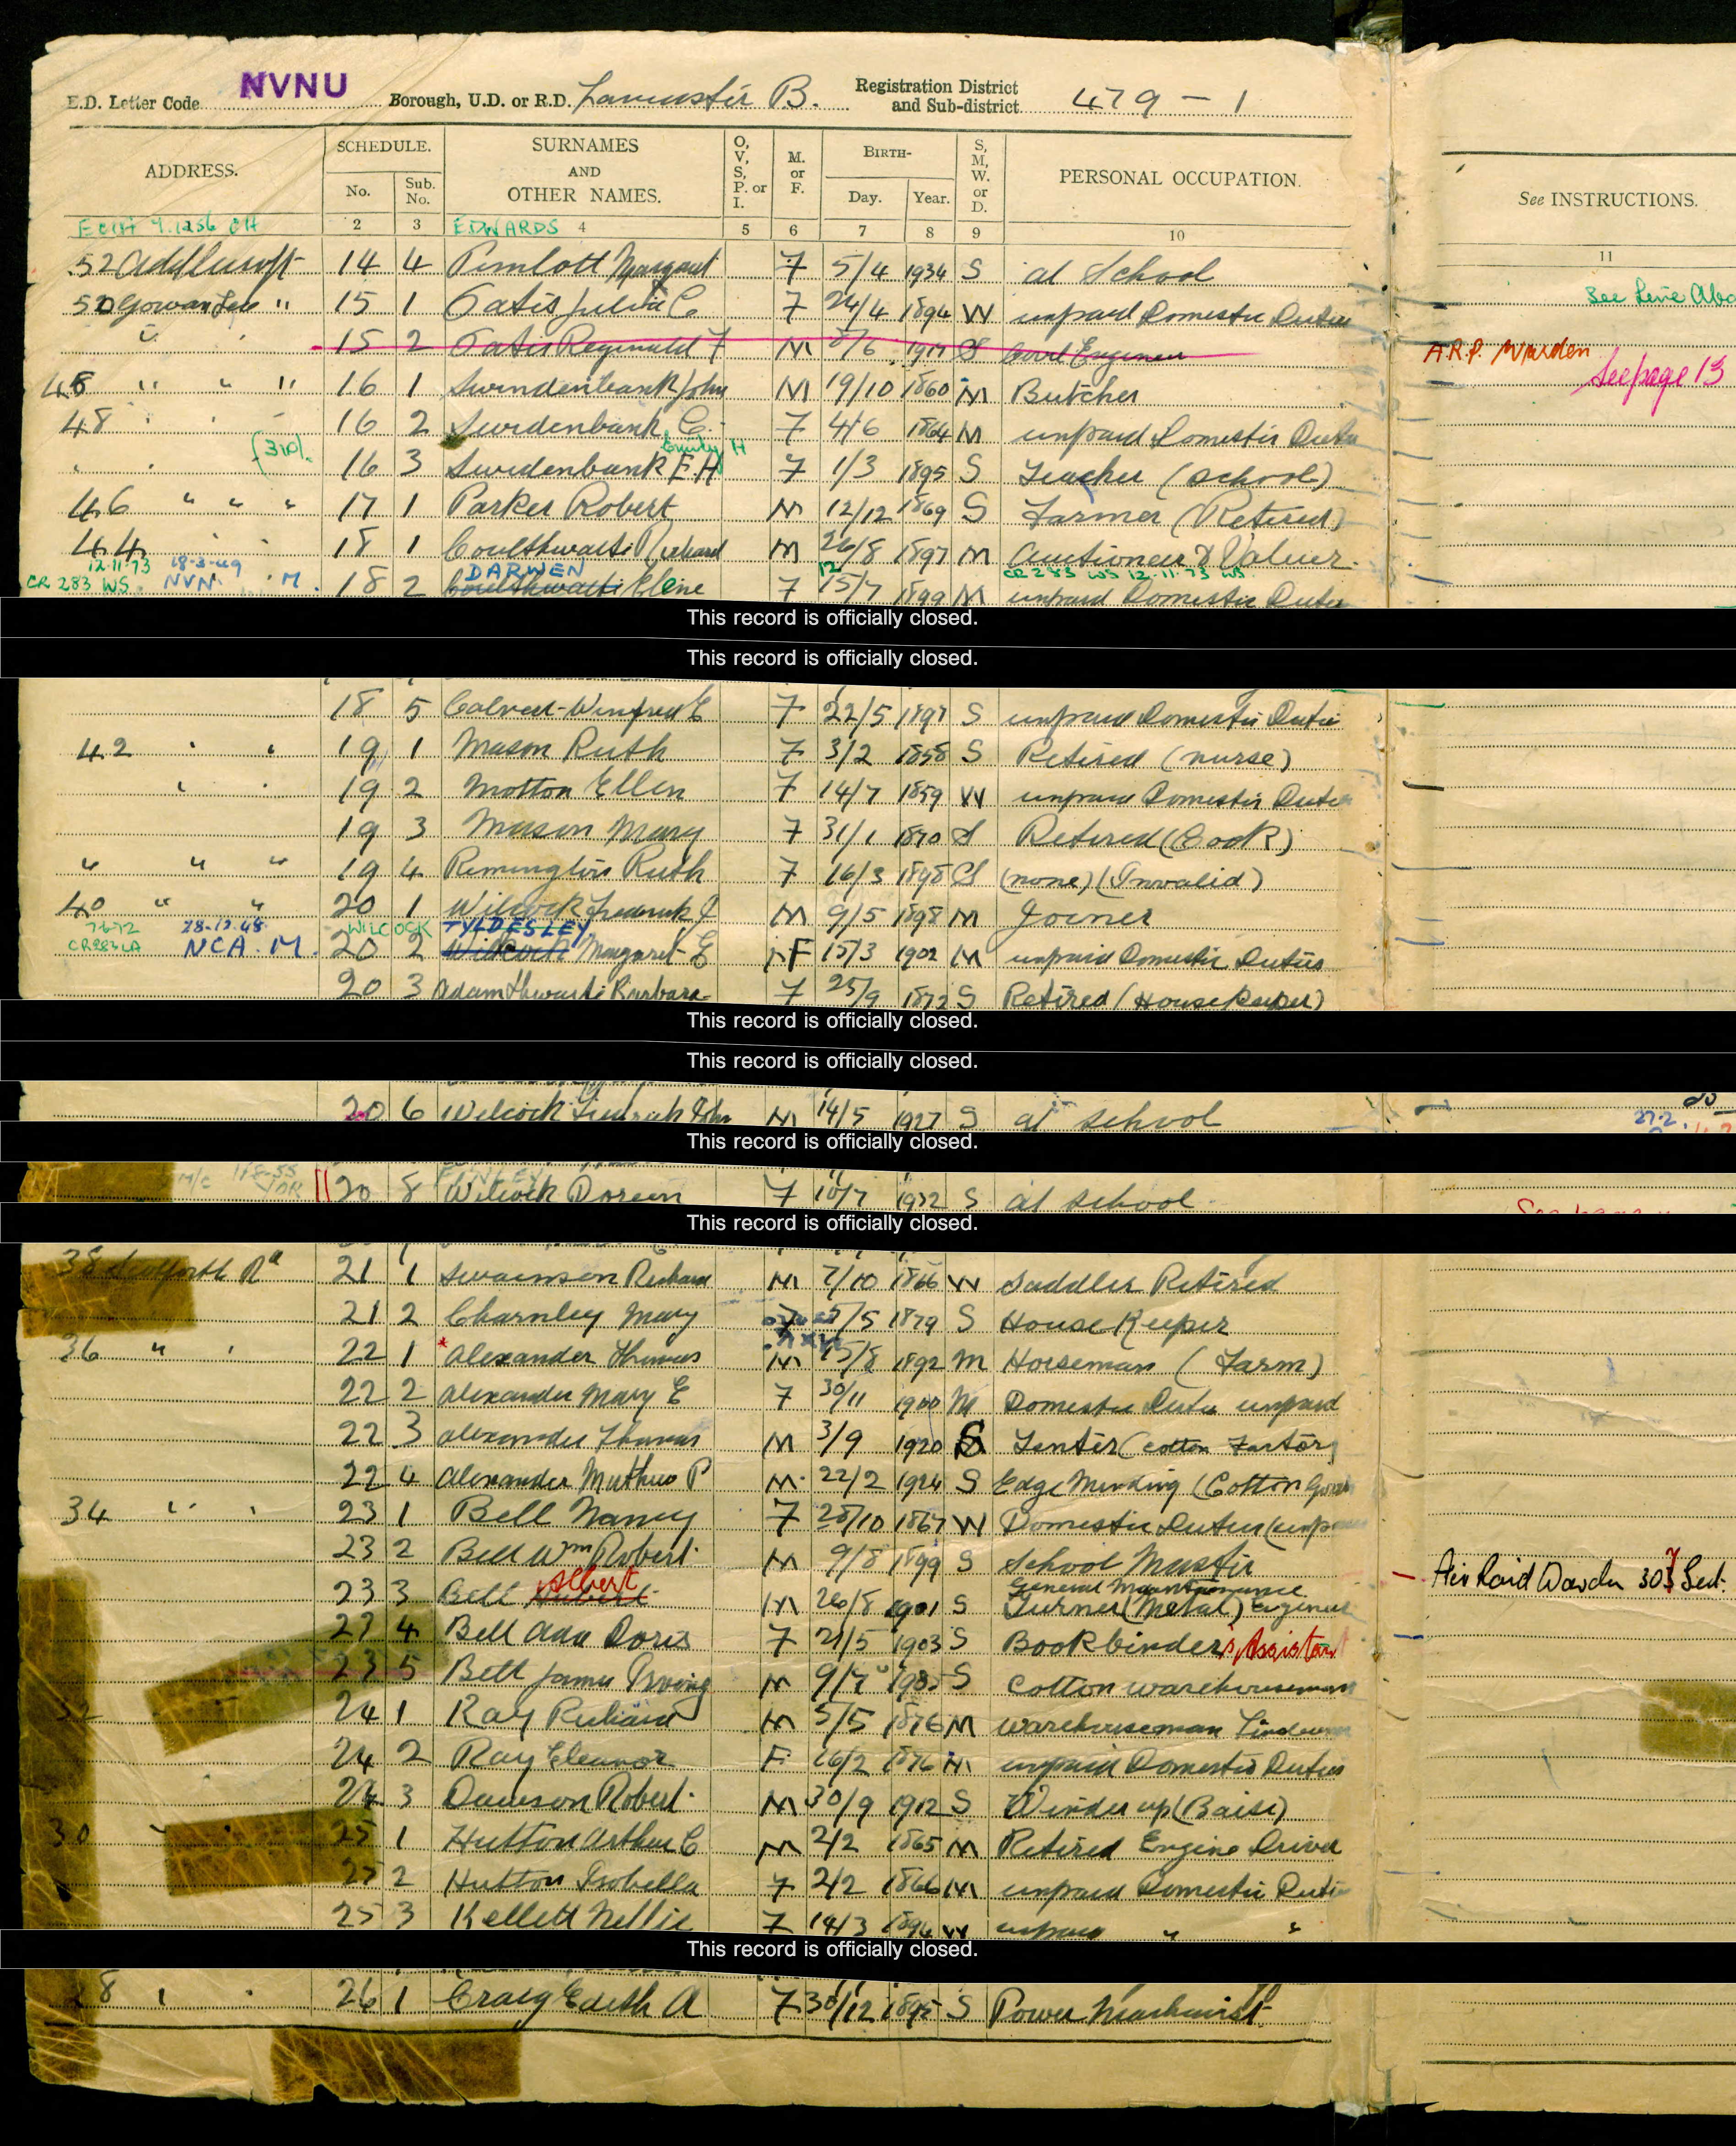 E.D. Letter Code NVNU Borough, U.D. or R.D. Lancaster B. Registration District and Sub-district 479 - 1
ADDRESS. SCHEDULE. No. Sub. No. SURNAMES AND OTHER NAMES. O, V, S, P. or I. M. or F. BIRTH- Day. Year. S, M, W. or D. PERSONAL OCCUPATION. See INSTRUCTIONS.
2 3 EDWARDS 4 5 6 7 8 9 10 11
52 14 4 Pimlott Margaret F 5/4 1934 S at School
See Line Abo
50 15 1 C F 24/4 1894 W unpaid Domestic Duties
15 2 Reginald F M 8/6 S Civil Engineer A.R.P. Warden
See page 13
48 " " " 16 1 Swindenbank John M 19/10 1860 M Butcher
48 16 2 Swidenbank C. F 4/6 1864 M unpaid Domestic Dutie
Emily H
16 3 Swidenbank E.H F 1/3 1895 S Teacher (School)
46 " " " 17 1 Parker Robert M 12/12 1869 S Farmer (Retired)
44 18 1 Coulthwaite Richard M 26/8 1897 M Auctioneer & Valuer
12.11.73 18-3-49 DARWEN 12 CR 283 WS 12.11.73 WS
CR 283 WS NVN M. 18 2 Coulthwaite Elene F 15/7 1899 M unpaid Domestic Dutie
This record is officially closed.
This record is officially closed.
18 5 Calvert Winifred E F 22/5 1897 S unpaid Domestic Dutie
42 19 1 Mason Ruth F 3/2 1858 S Retired (nurse)
19 2 Motton Ellen F 14/7 1859 W unpaid Domestic Dutie
19 3 Mason Mary F 31/1 1870 S Retired (Cook)
" " " 19 4 Remington Ruth F 16/3 1898 S (none) (Invalid)
40 " " 20 1 Wilcock Frederick J M 9/5 1898 M Joiner
28-12-48 WILCOCK TYLDESLEY
NCA. M. 20 2 Wilcock Margaret E F 15/3 1902 M unpaid Domestic Duties
20 3 Adamthwaite Barbara F 25/9 1872 S Retired (Housekeeper)
This record is officially closed.
This record is officially closed.
20 6 Wilcock Frederick John M 14/5 1927 S at School
This record is officially closed.
20 8 Wilcock Doreen F 10/7 1932 S at School
This record is officially closed.
38 Rd 21 1 Swainson Richard M 7/10 1866 W Saddler Retired
21 2 Charnley Mary F 5/5 1879 S House Keeper
36 " 22 1 Alexander Thomas M 15/8 1892 M Horseman (Farm)
22 2 Alexander Mary E F 30/11 1900 M Domestic Dutie unpaid
22 3 Alexander Thomas M 3/9 1920 S Tenter (Cotton Factory
22 4 Alexander Mathew P M 22/2 1924 S Edge Mending (Cotton Goods
34 " 23 1 Bell Nancy F 28/10 1867 W Domestic Duties (unpaid
23 2 Bell Wm Robert M 9/8 1899 S School Master Air Raid Warden 307 Sect.
Albert General Maintenance
23 3 Bell Hubert M 26/8 1901 S Turner (Metal) Engineer
23 4 Bell Ada Doris F 21/5 1903 S Bookbinder's Assistant
23 5 Bell James Irving M 9/7 1905 S Cotton Warehouseman
32 24 1 Ray Richard M 5/5 1876 M Warehouseman
24 2 Ray Eleanor F 26/2 1876 M unpaid Domestic Duties
24 3 Dawson Robert M 30/9 1912 S Winder up (Baize)
30 25 1 Hutton Arthur C M 2/2 1865 M Retired Engine Driver
25 2 Hutton Isobella F 2/2 1866 M unpaid Domestic Dutie
25 3 Kellett Nellie F 14/3 1894 W unpaid " "
This record is officially closed.
28 26 1 Craig Edith A F 30/12 1895 S Power Machinist